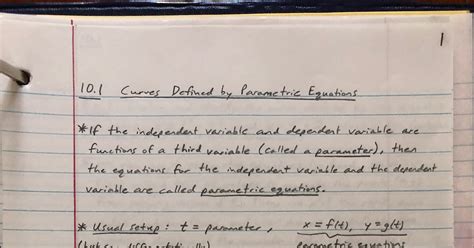 1
10.1 Curves Defined by Parametric Equations
* If the independent variable and dependent variable are
functions of a third variable (called a parameter), then
the equations for the independent variable and the dependent
variable are called parametric equations.
* Usual setup: t = parameter, x = f(t), y = g(t)
parametric equations